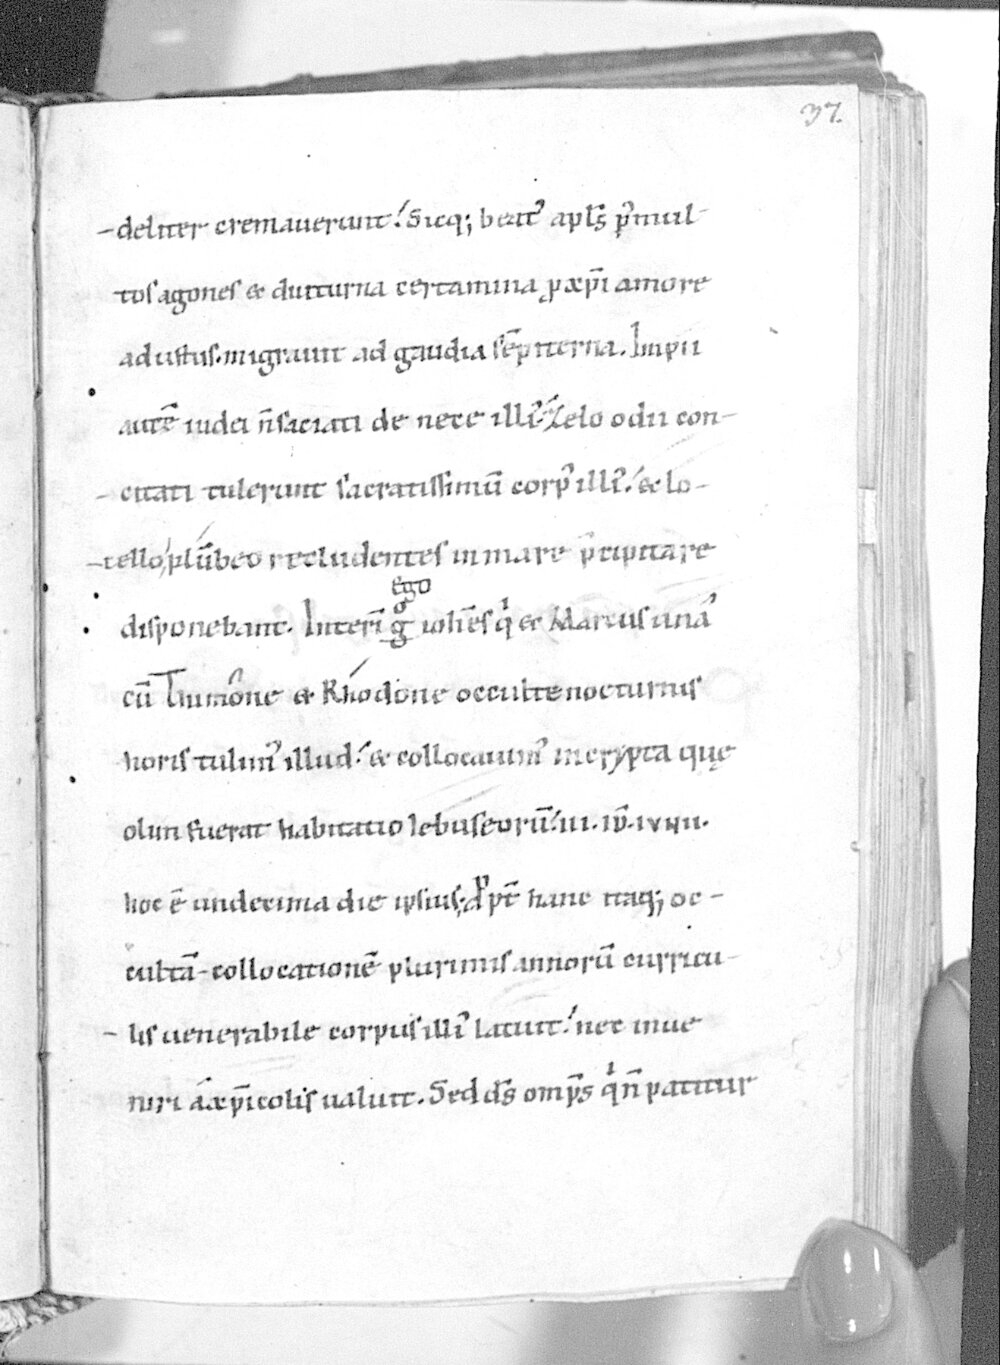 37.
-deliter cremauerunt. Sicq; beat᾽ apl̄s p̄ mul-
tos agones & diuturna certamina ꝓ xp̄i amore
adustus. migrauit ad gaudia sēpiterna. Impii
autē iudei n̄ saciati de nece illi᾽. Zelo odii con-
-citati tulerunt sacratissimū corp᾽ illi᾽. & lo-
-cello plūbeo recludentes in mare p̄cipitare
ego
disponebant. Interī g̊ ioh̄es q' & Marcus unā
cū Thimōne & Rhodone occulte nocturnis
horis tulim᾽ illud. & collocauim᾽ in crypta quę
olim fuerat habitatio Iebuseorū. iii. ip̄.
hoc ē undecima die ipsius; pt̄ hanc itaq; oc-
cultā-collocationē plurimis annorū curricu-
-lis uenerabile corpus illi᾽ latuit. nec inue
niri á xp̄icolis ualuit. Sed ds̄ omp̄s q' n̄ patitur